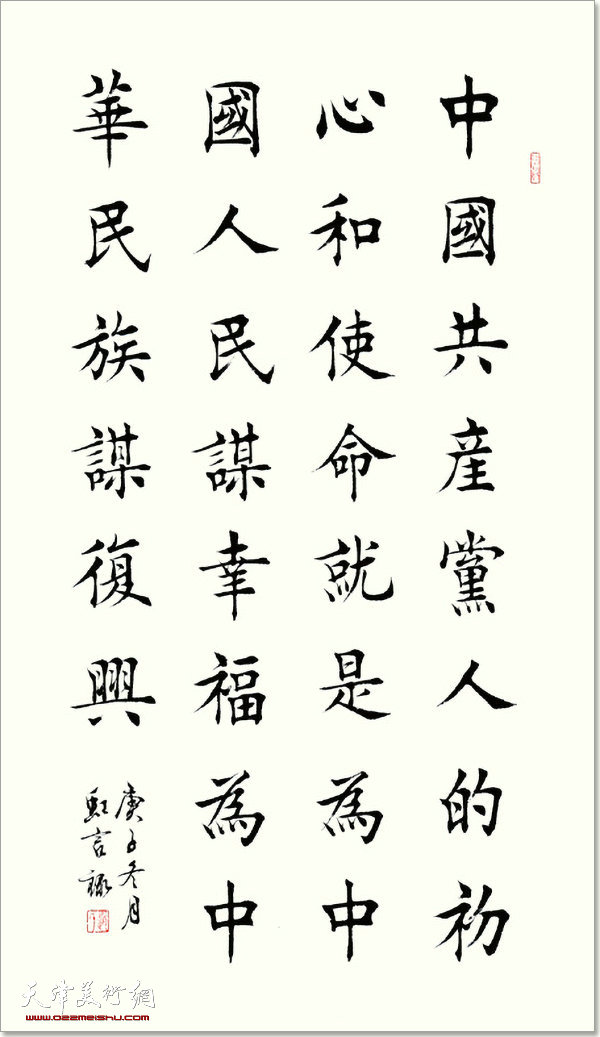 中國共産黨人的初
心和使命就是為中
國人民謀幸福為中
華民族謀復興
庚子冬月
天津美術網
www.022meishu.com